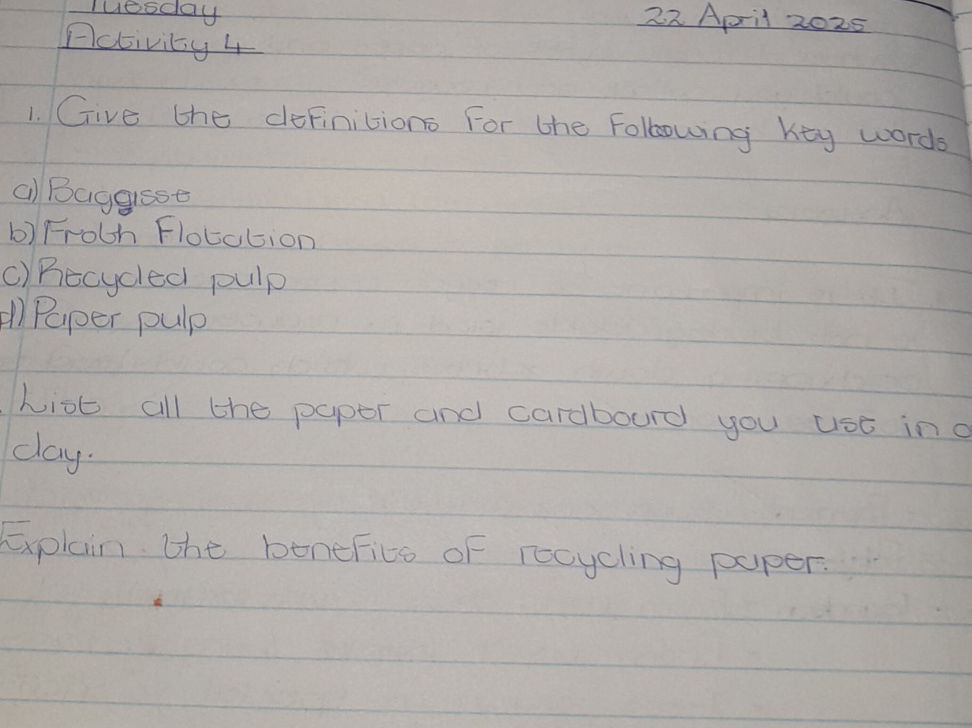 Tuesday
22 April 2025
Activity 4
1. Give the definitions for the following key words
a) Baggisse
b) Froth Flotation
c) Recycled pulp
d) Paper pulp
List all the paper and cardboard you use in a
day.
Explain the benefits of recycling paper.